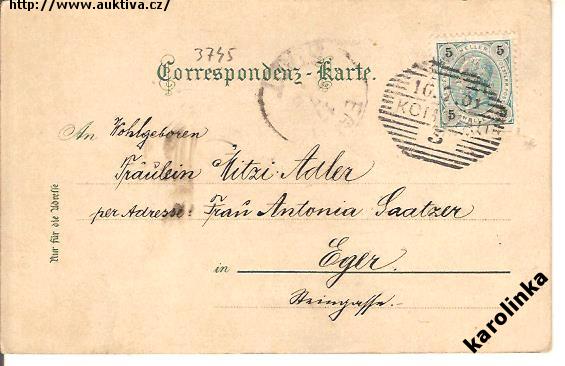 http://www.auktiva.cz/
3745
5 HELLER 5
Correspondenz-Karte.
5
An Wohlgeboren
Fräulein Mitzi Adler
per Adresse: Frau Antonia Saatzer
in Eger.
Steingasse.
Nur für die Adresse
karolinka